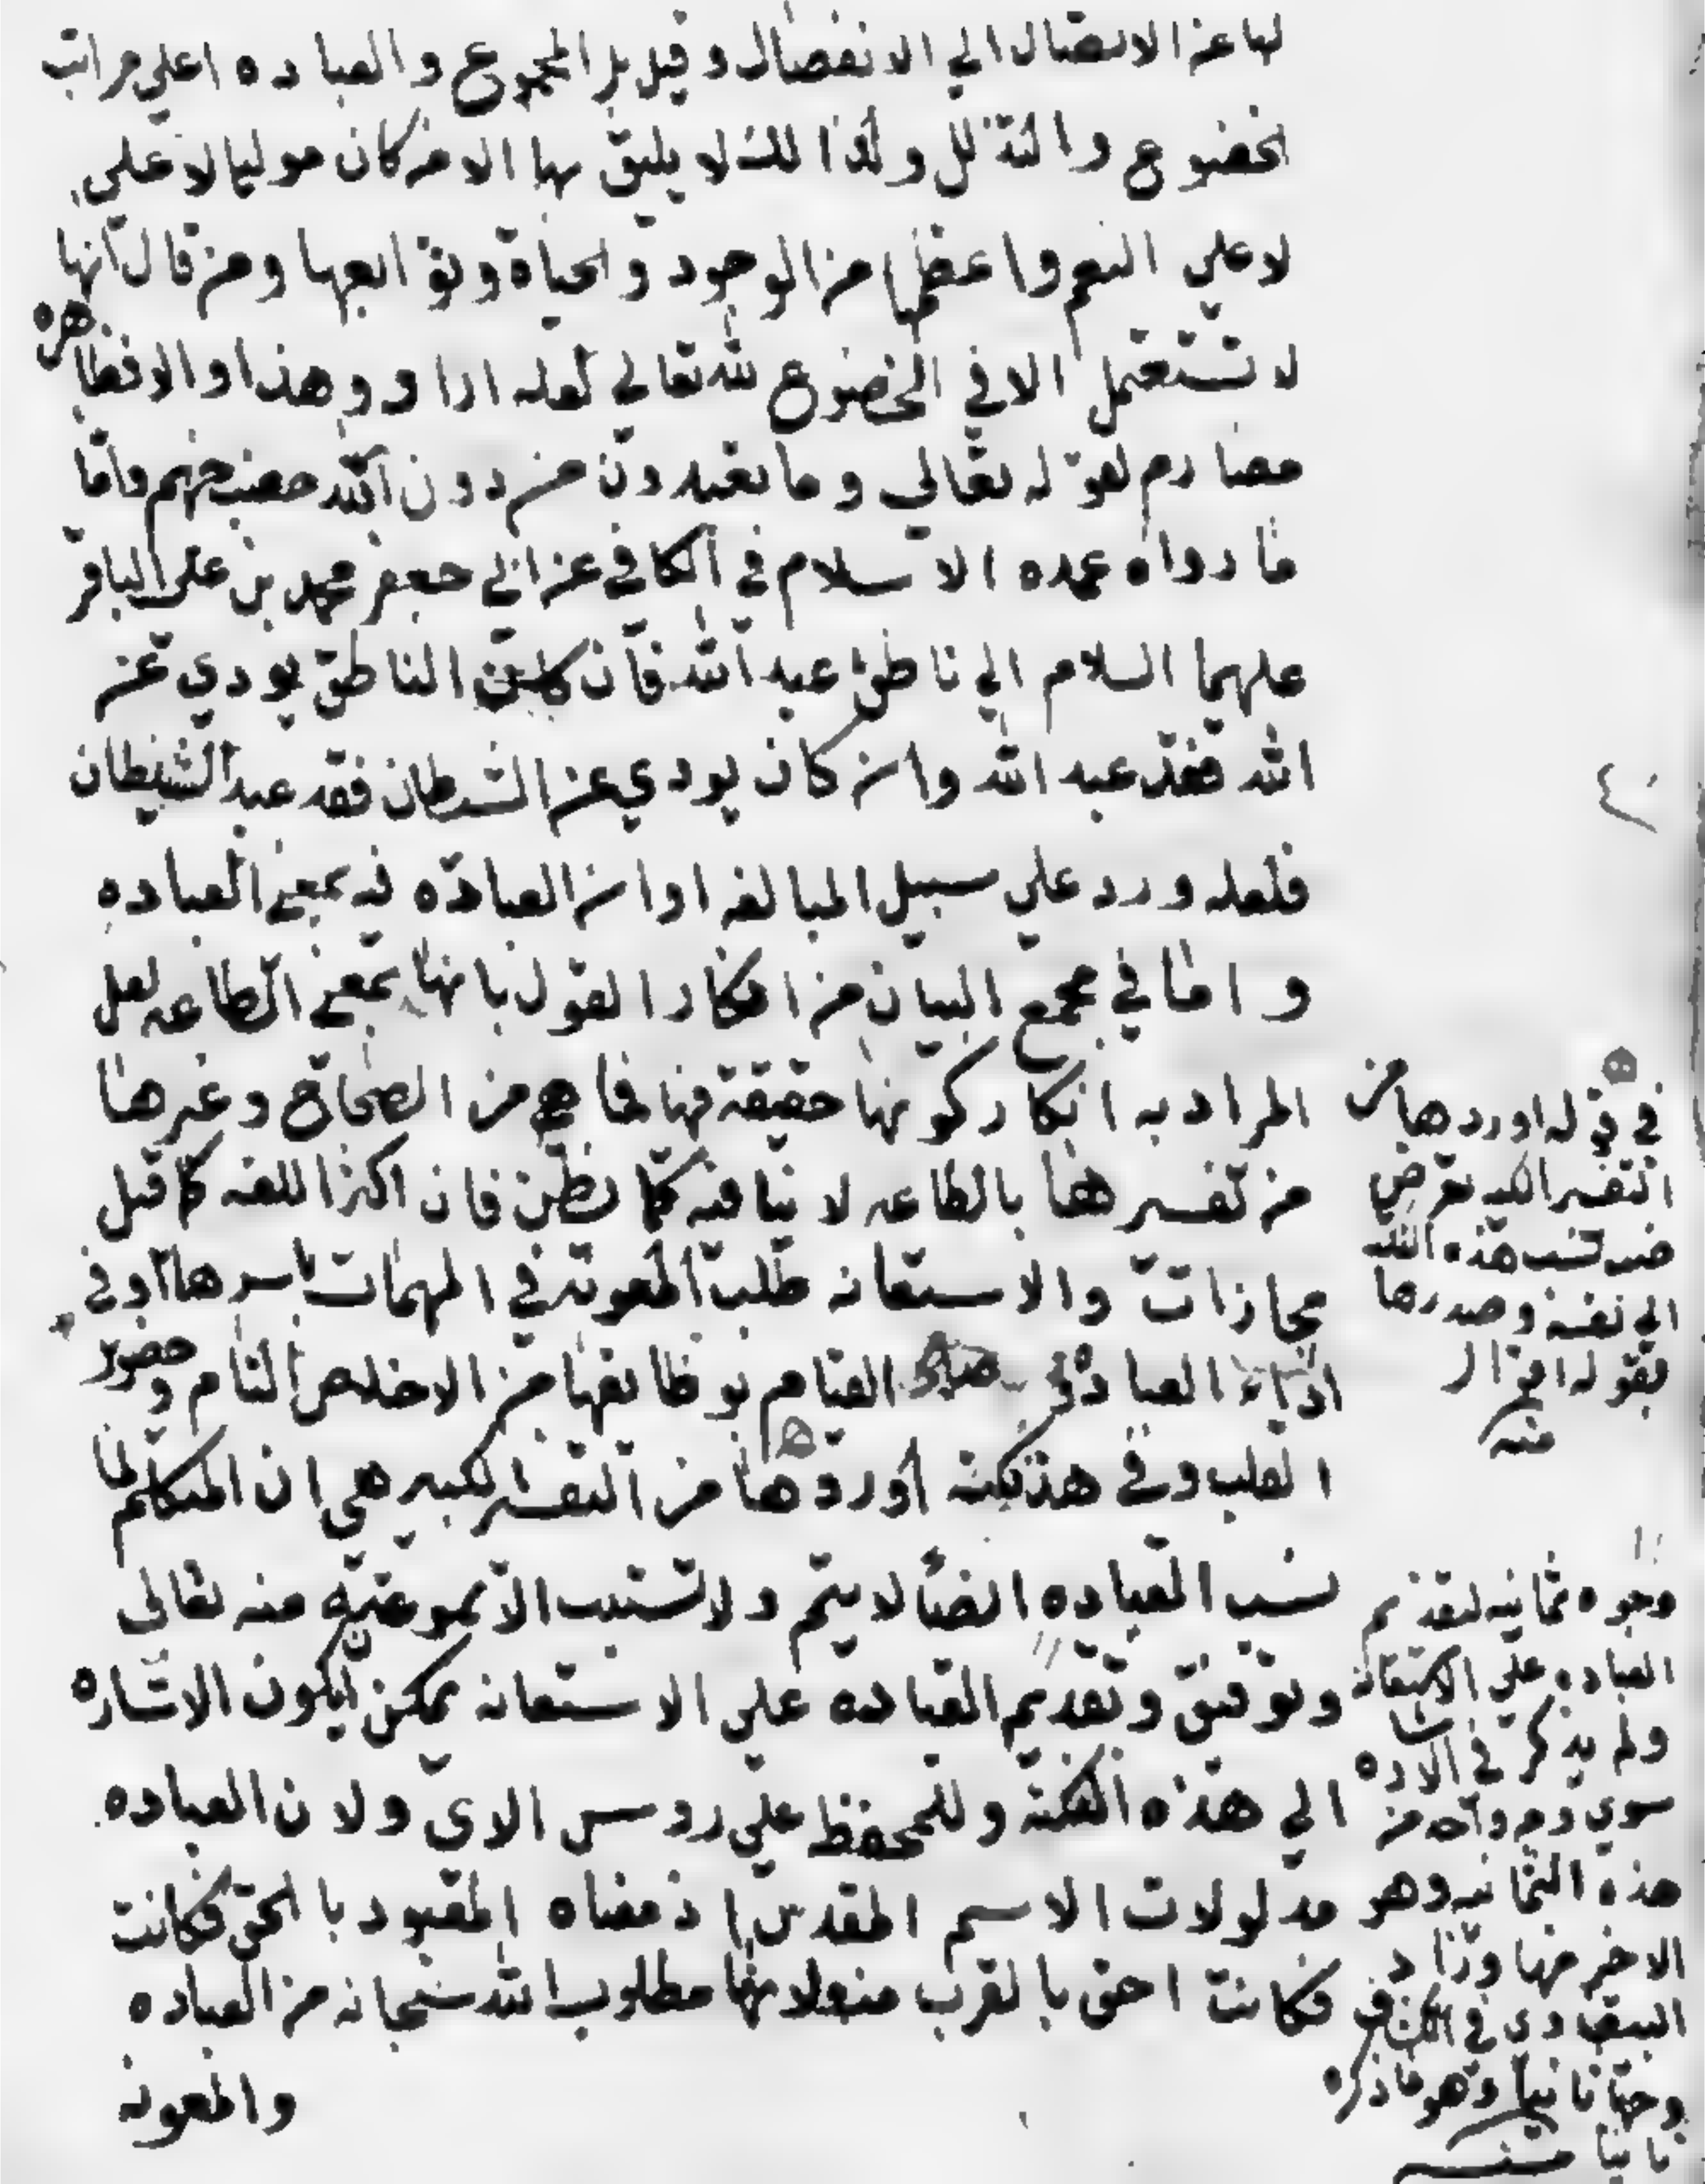 لها عن الاتصال الي الانفصال وقيل بل المجموع والعباده اعلي مراتب
الخضوع والتذلل ولذا لك لا يليق بها الا من كان موليا لا علي
لا علي النعم واعظمها من الوجود والحياة وتوابعها ومن قال انها
لا تستعمل الا في الخضوع لله تعالي لعله اراد وهذا والا فظاهره
مصادم لقوله تعالي وما تعبدون من دون الله حصب جهنم واما
ما رواه عمده الاسلام في الكافي عن ابي جعفر محمد بن علي الباقر
عليهما السلام الي ناطق عبد الله فان كان الناطق يودي عن
الله فقد عبد الله وان كان يودي عن الشيطان فقد عبد الشيطان
فلعله ورد علي سبيل المبالغه او ان العباده فيه بمعني العباده
واما في مجمع البيان من انكار القول بانها بمعني الطاعه لعل
المراد به انكار كونها حقيقة فيها فما هو من الصحاح وغيرها
من تفسيرها بالطاعه لا ينافيه كما يظن فان اكثر اللغه كما قيل
مجازات والاستعانه طلب المعونه في المهمات باسرها او في
اداء العباده و القيام بوظائفها من الاخلاص التام وحضور
القلب وفي هذ نكته اوردها من التفسير الكبير هي ان المتكلم لما
نسب العباده ايضا لا يتم ولا تستتب الا بمعونته منه تعالى
وتوفيق وتقديم العباده علي الاستعانه يمكن ليكون الاشاره
الي هذه النكته وللحفظ علي روس الاي ولان العباده
مدلولات الاسم المقدس اذ معناه المعبود بالحق فكانت
فكانت احق بالقرب منه ولانها مطلوب الله سبحانه من العباده
والمعونه
في قوله اوردها من
التفسير الكبير تعرض
نسب هذه
الي نفسه وصدرها
بقوله اقول
منه
وجوه ثمانيه لتقديم
العباده علي الاستعانه
ولم يذكر في
سوي وجه واحد من
هذه الثمانيه وهو
الاخير منها وزاد
البيضاوي في
وجها ثانيا وهو ما ذكره
ثانيا منه